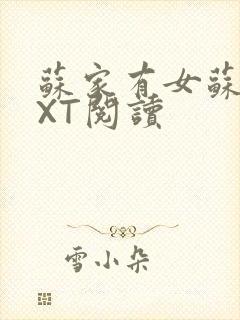 蘇家有女蘇
XT閱讀
雪小朵